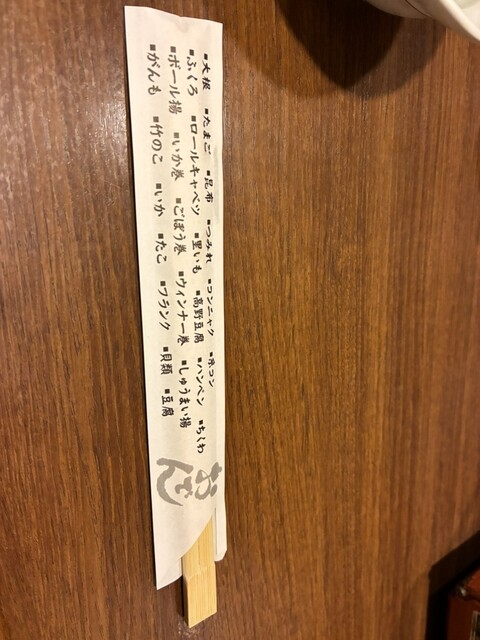 ■大根 ■たまご ■昆布 ■つみれ ■コンニャク ■糸コン ■ちくわ
■ふくろ ■ロールキャベツ ■里いも ■高野豆腐 ■ハンペン
■ボール揚 ■いか巻 ■ごぼう巻 ■ウィンナー巻 ■しゅうまい揚
■がんも ■竹のこ ■いか ■たこ ■フランク ■貝類 ■豆腐
おでん